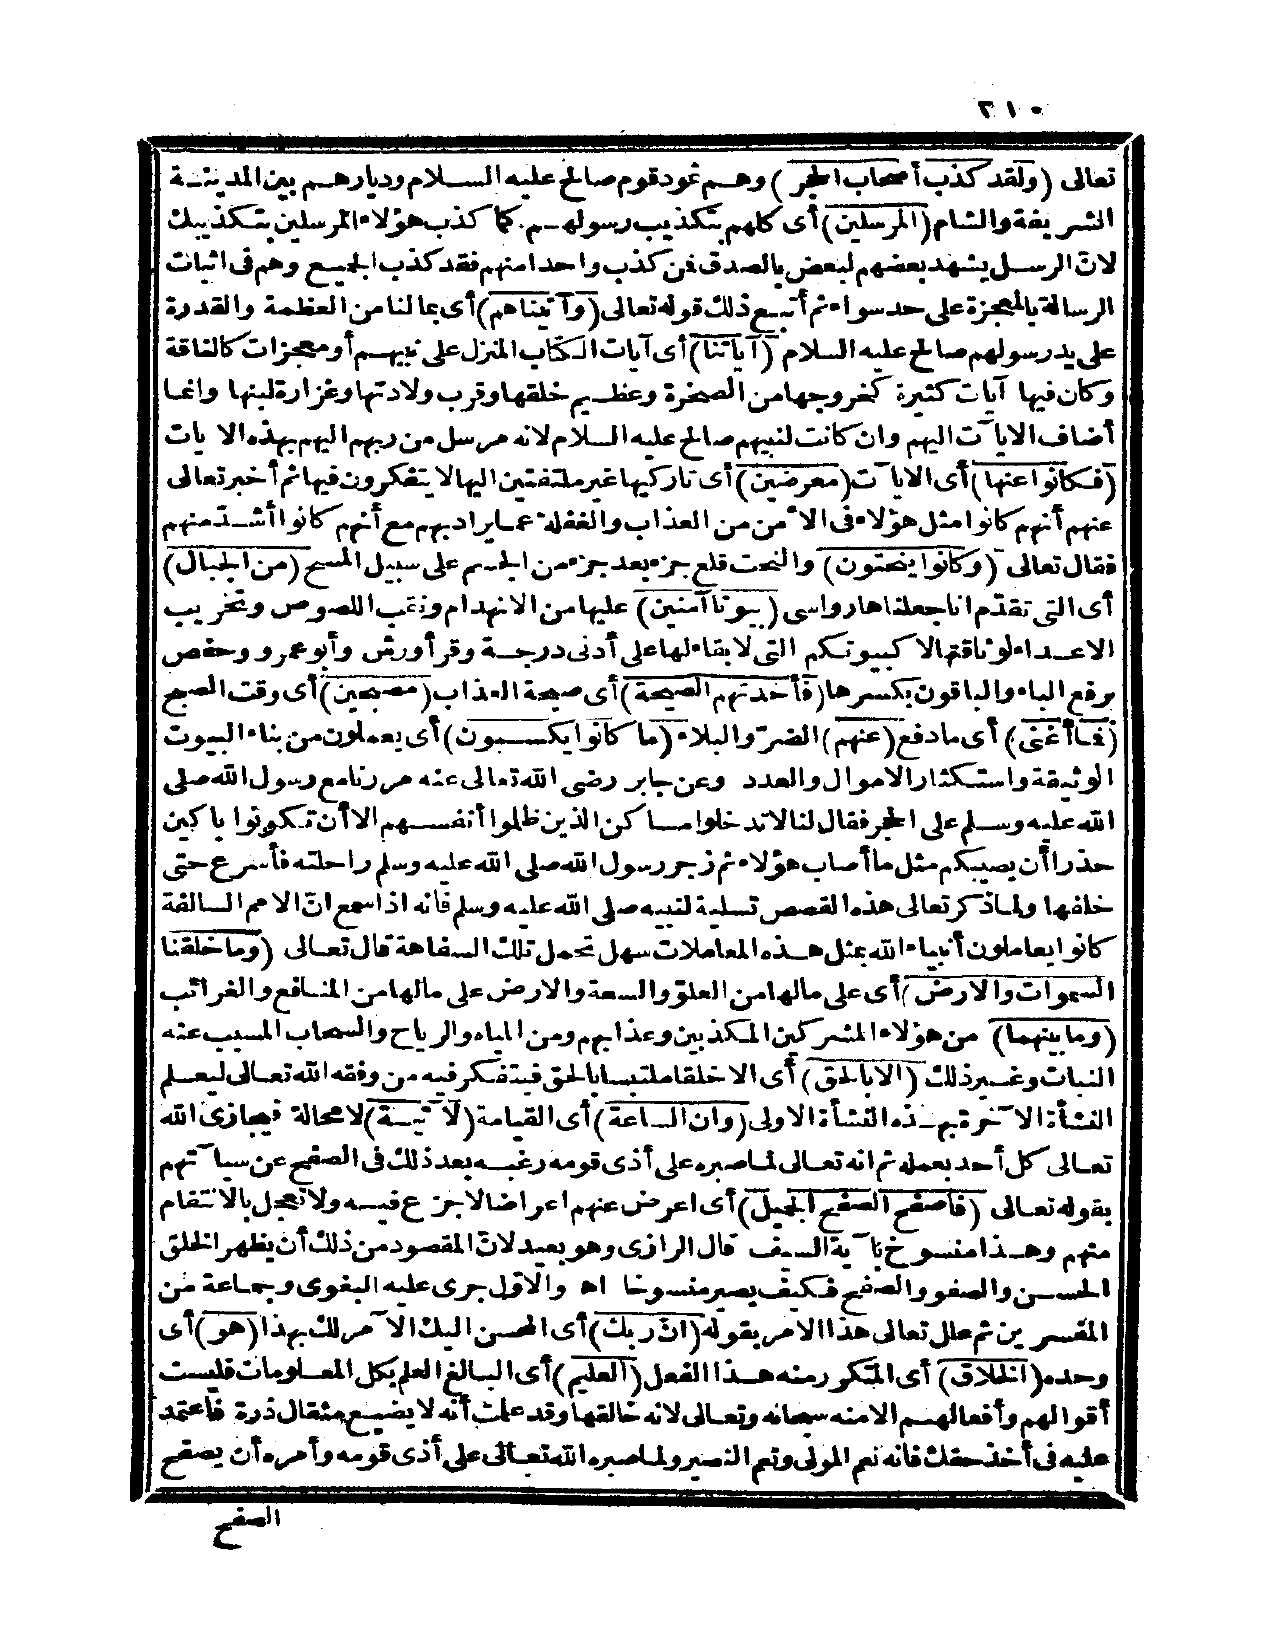 ٢١٠
تعالى (ولقد كذب أصحاب الحجر) وهم ثمود قوم صالح عليه السلام وديارهم بين المدينة
الشريفة والشام (المرسلين) أى كلهم بتكذيب رسولهم. كما كذب هؤلاء المرسلين بتكذيبك
لانّ الرسل يشهد بعضهم لبعض بالصدق فمن كذب واحدا منهم فقد كذب الجميع وهم فى اثبات
الرسالة بالمعجزة على حد سواء ثم أتبع ذلك قوله تعالى (وآتيناهم) أى بما لنا من العظمة والقدرة
على يد رسولهم صالح عليه السلام (آياتنا) أى آيات الكتاب المنزل على نبيهم أو معجزات كالناقة
وكان فيها آيات كثيرة كخروجها من الصخرة وعظيم خلقها وقرب ولادتها وغزارة لبنها وانما
أضاف الآيات اليهم وان كانت لنبيهم صالح عليه السلام لانه مرسل من ربهم اليهم بهذه الآيات
(فكانوا عنها) أى الآيات (معرضين) أى تاركيها غير ملتفتين اليها لا يتفكرون فيها ثم أخبر تعالى
عنهم أنهم كانوا مثل هؤلاء فى الامن من العذاب والغفلة عما يراد بهم مع أنهم كانوا أشدّ منهم
فقال تعالى (وكانوا ينحتون) والنحت قلع جزء بعد جزء من الجسم على سبيل المسح (من الجبال)
أى التى تقدّم انا جعلناها رواسى (بيوتا آمنين) عليها من الانهدام ونقب اللصوص وتخريب
الاعداء لوثاقتها لا كبيوتكم التى لا بقاء لها على أدنى درجة وقرأ ورش وأبو عمرو وحفص
برفع الباء والباقون بكسرها (فأخذتهم الصيحة) أى صيحة العذاب (مصبحين) أى وقت الصبح
(فما أغنى) أى ما دفع (عنهم) الضرّ والبلاء (ما كانوا يكسبون) أى يعملون من بناء البيوت
الوثيقة واستكثار الاموال والعدد وعن جابر رضى الله تعالى عنه مررنا مع رسول الله صلى
الله عليه وسلم على الحجر فقال لنا لا تدخلوا مساكن الذين ظلموا أنفسهم الا أن تكونوا باكين
حذرا أن يصيبكم مثل ما أصاب هؤلاء ثم زجر رسول الله صلى الله عليه وسلم راحلته فأسرع حتى
خلفها ولما ذكر تعالى هذه القصص تسلية لنبيه صلى الله عليه وسلم فانه اذا سمع انّ الامم السالفة
كانوا يعاملون أنبياء الله بمثل هذه المعاملات سهل تحمل تلك السفاهة قال تعالى (وما خلقنا
السموات والارض) أى على مالها من العلوّ والسعة والارض على مالها من المنافع والغرائب
(وما بينهما) من هؤلاء المشركين المكذبين وعذابهم ومن المياه والرياح والسحاب المسبب عنه
النبات وغير ذلك (الا بالحق) أى الا خلقا ملتبسا بالحق فيتفكر فيه من وفقه الله تعالى ليعلم
النشأة الآخرة بهذه النشأة الاولى (وان الساعة) أى القيامة (لآتية) لا محالة فيجازى الله
تعالى كل أحد بعمله ثم انه تعالى لما صبره على أذى قومه رغبه بعد ذلك فى الصفح عن سيآتهم
بقوله تعالى (فاصفح الصفح الجميل) أى اعرض عنهم اعراضا لا جزع فيه ولا تعجل بالانتقام
منهم وهذا منسوخ بآية السيف قال الرازى وهو بعيد لانّ المقصود من ذلك أن يظهر الخلق
الحسن والصفو والصفح فكيف يصير منسوخا اه والاوّل جرى عليه البغوى وجماعة من
المفسرين ثم علل تعالى هذا الامر بقوله (انّ ربك) أى المحسن اليك الآمر لك بهذا (هو) أى
وحده (الخلاق) أى المتكرر منه هذا الفعل (العليم) أى البالغ العلم بكل المعلومات فليست
أقوالهم وأفعالهم الا منه سبحانه وتعالى لانه خالقها وقد علمت أنه لا يضيع مثقال ذرة فاعتمد
عليه فى أخذ حقك فانه نعم المولى ونعم النصير ولما صبره الله تعالى على أذى قومه وأمره أن يصفح
الصفح